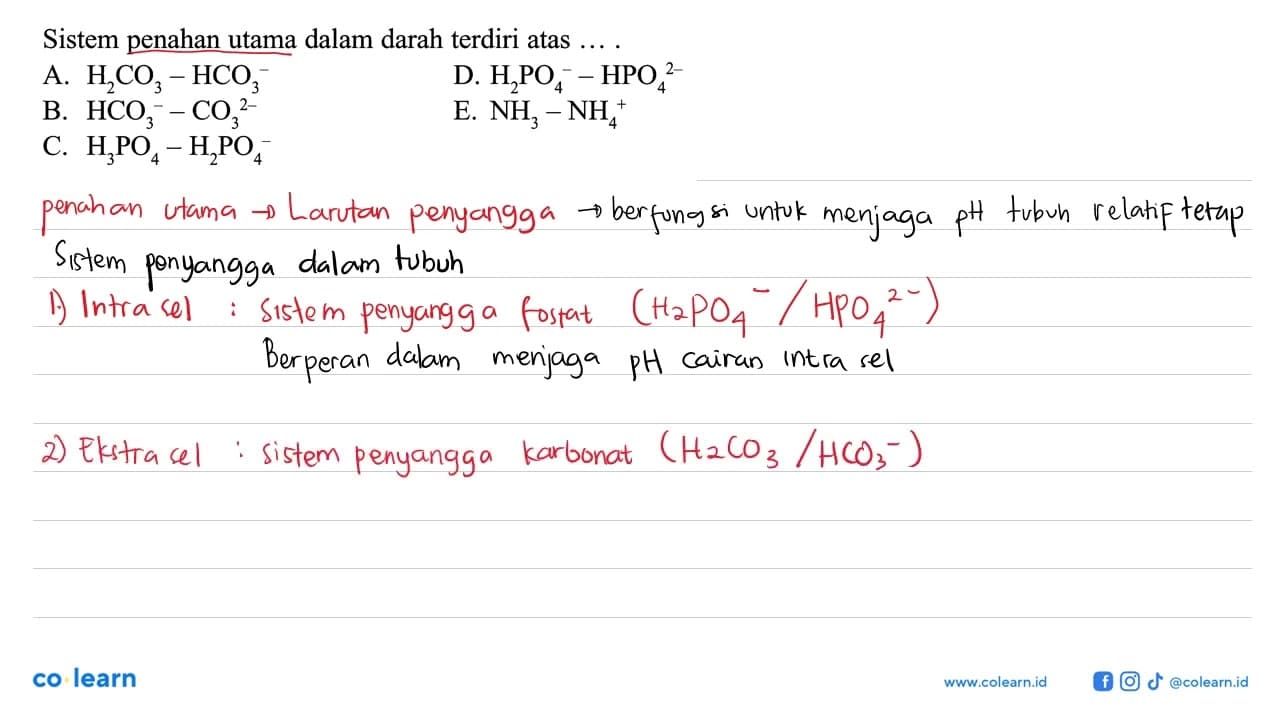 Sistem penahan utama dalam darah terdiri atas ... .
A. H₂CO₃ – HCO₃⁻
D. H₂PO₄⁻ – HPO₄²⁻
B. HCO₃⁻ – CO₃²⁻
E. NH₃ – NH₄⁺
C. H₃PO₄ – H₂PO₄⁻
penahan utama → Larutan penyangga → berfungsi untuk menjaga pH tubuh relatif tetap
Sistem penyangga dalam tubuh
1) Intra sel : sistem penyangga fosfat (H₂PO₄⁻ / HPO₄²⁻)
Berperan dalam menjaga pH cairan intra sel
2) Ekstra sel : sistem penyangga karbonat (H₂CO₃ / HCO₃⁻)
co learn
www.colearn.id
@colearn.id